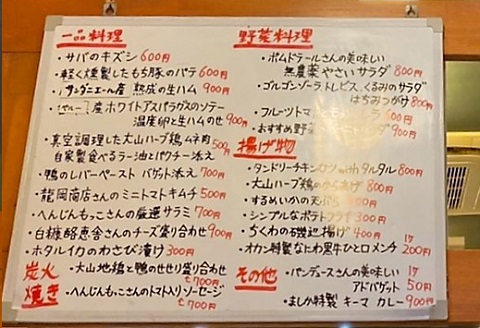 一品料理
・サバのキズシ 600円
・軽く燻製したもち豚のパテ 600円
・サンダニエーレ産 熟成の生ハム 900円
・ペルー産ホワイトアスパラガスのソテー
温度卵と生ハムのせ 900
・真空調理した大山ハーブ鶏ムネ肉 500
自家製食べるラー油とパクチー添え
・鴨のレバーペースト バゲット添え 700円
・龍岡商店さんのミニトマトキムチ 500円
・へんじんもっこさんの厳選サラミ 700円
・白糠酪恵舎さんのチーズ盛り合わせ 900円
・ホタルイカのわさび漬け 300円
炭火焼き
・大山地鶏と鴨のせせり盛り合わせ 700円
・へんじんもっこさんのトマト入りソーセージ 700円
野菜料理
・ポムドテールさんの美味しい
無農薬やさいサラダ 800円
・ゴルゴンゾーラトレビス、くるみのサラダ
はちみつがけ 800円
・フルーツトマト 600円
・おすすめ野菜 900円
揚げ物
・タンドリーチキンカツ タルタル 800円
・大山ハーブ鶏のからあげ 800円
・するめいかの天ぷら
・シンプルなポテトフライ 300円
・ちくわの磯辺揚げ 400円
・オカン特製なにわ黒牛ひと口メンチ 1ケ 200円
その他
・パンデュースさんの美味しい
アドバゲット 1ケ 50円
・ましか特製 キーマ カレー 900円